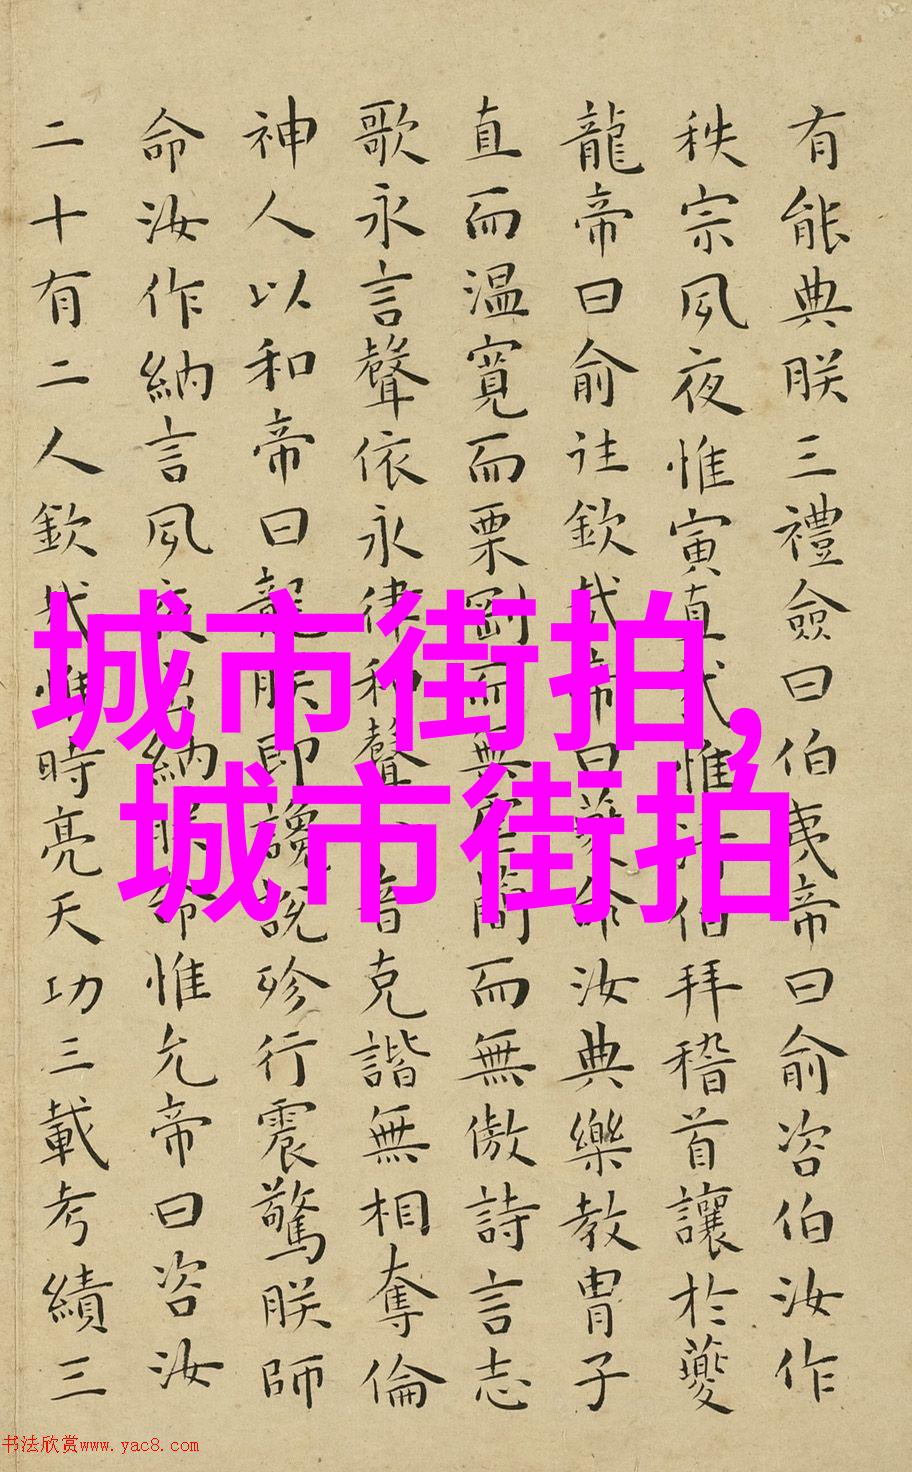 有能典朕三禮僉曰伯夷帝曰俞咨伯汝作
秩宗夙夜惟寅直哉惟伯拜稽首讓於夔
龍帝曰俞往欽哉帝曰夔命汝典樂教冑子
直而温寬而栗剛而無虐簡而無傲詩言志
歌永言聲依永律和聲音克諧無相奪倫
神人以和帝曰龍朕即讒說殄行震驚朕師
命汝作納言夙夜出納朕命惟允帝曰咨汝
二十有二人欽哉惟時亮天功三載考績三
城市街拍,
城市街拍
书法欣赏www.yac8.com